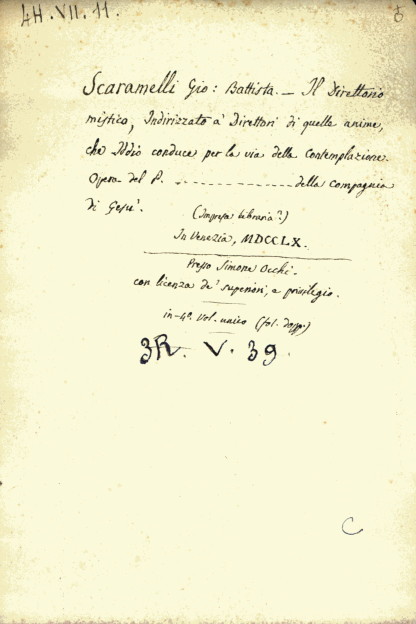 4H. VII. 11.
Scaramelli Gio: Battista. – Il Direttorio
mistico, Indirizzato a' Direttori di quelle anime,
che Iddio conduce per la via della Contemplazione.
Opera del P. ------------------ della compagnia
di Gesu'.
(Impresa libraria?)
In Venezia, MDCCLX.
Presso Simone Occhi.
con licenza de' superiori, e privilegio.
in-4º. Vol. unico (fol. dopp.)
3R. V. 39.
C